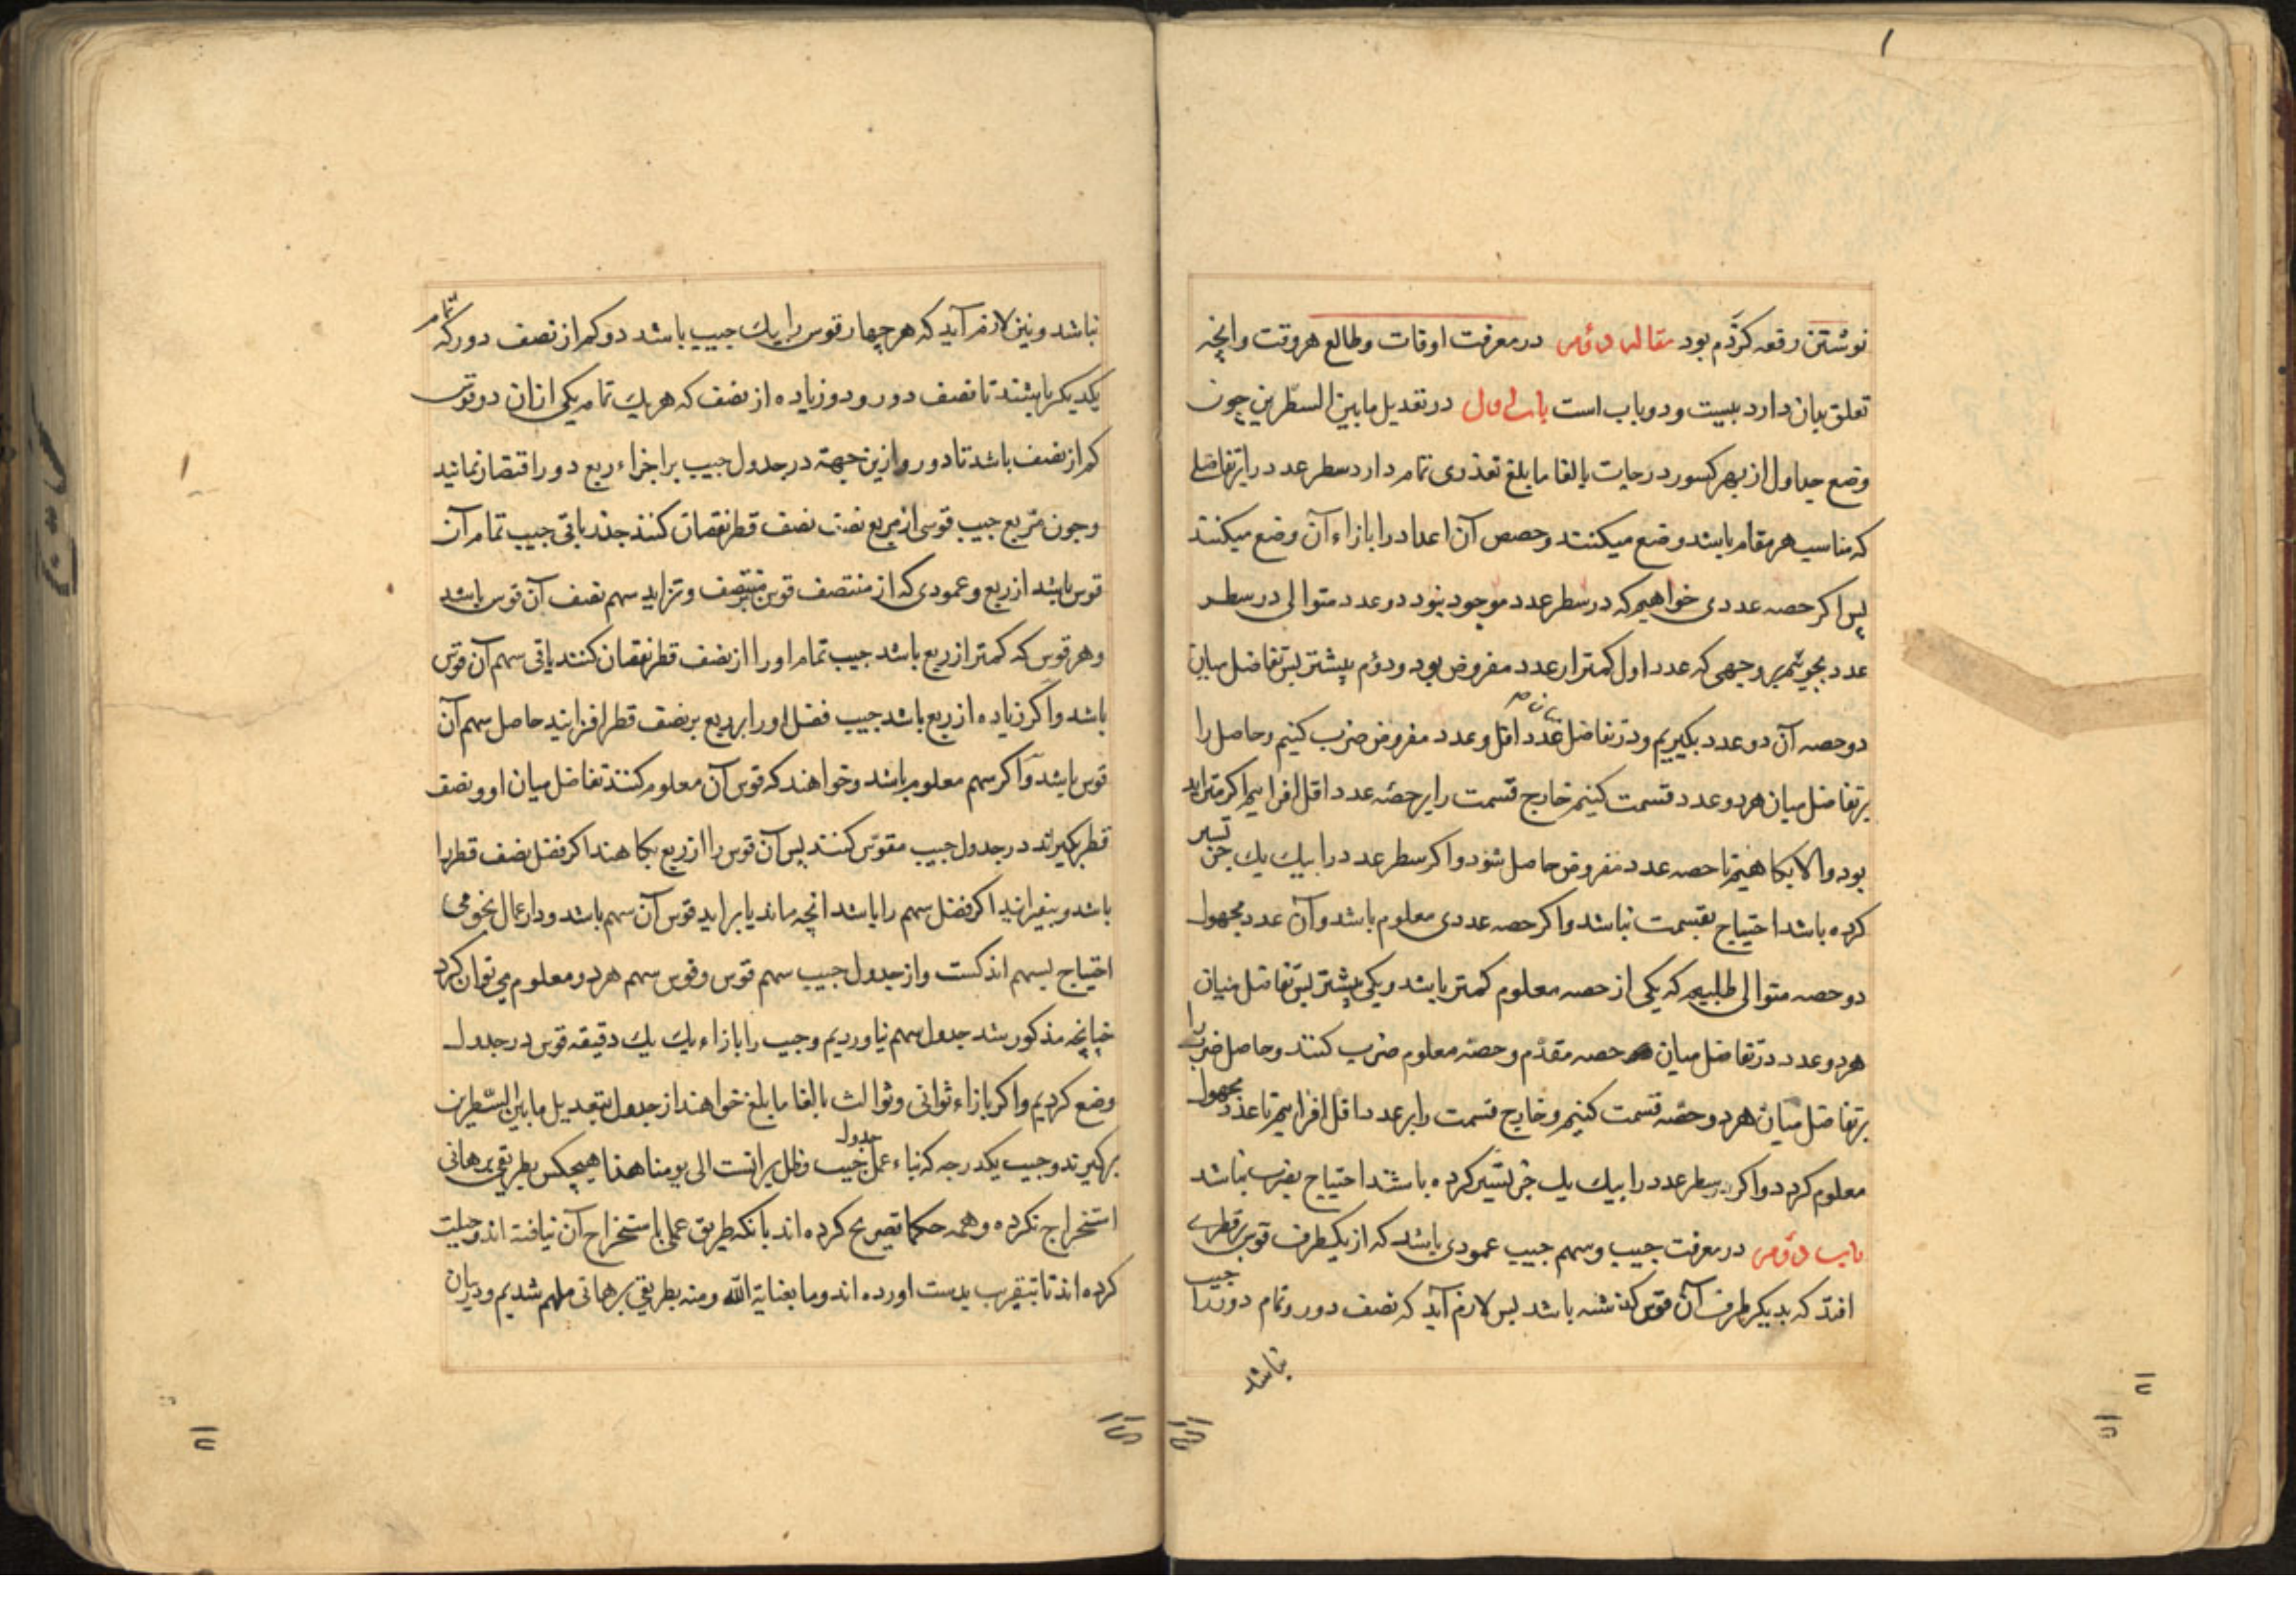 نوشتن رقعه کردم بود مقاله دوم در معرفت اوقات و طالع هر وقت و انچه
تعلق بدان دارد بیست و دو باب است باب اول در تعدیل ما بین السطرین چون
وضع جداول از بهر کسور درجات بالغا ما بلغ تعذری تمام دارد سطر عدد را بتفاضلی
که مناسب هر مقام باشد وضع میکنند و حصص آن اعداد را بازاء آن وضع میکنند
پس اکر حصه عددی خواهیم که در سطر عدد موجود نبود دو عدد متوالی در سطر
عدد بجوئیم بر وجهی که عدد اول کمتر از عدد مفروض بود و دوم بیشتر پس تفاضل میان
دو حصه آن دو عدد بکیریم و در تفاضل میان عدد اقل و عدد مفروض ضرب کنیم و حاصل را
بر تفاضل میان هر دو عدد قسمت کنیم خارج قسمت را بر حصه عدد اقل افزاییم اکر متزاید
بود و الا بکاهیم تا حصه عدد مفروض حاصل شود و اکر سطر عدد را بیك یك جزء تسییر
کرده باشد احتیاج بقسمت نباشد و اکر حصه عددی معلوم باشد و آن عدد مجهول
دو حصه متوالی طلبیم که یکی از حصه معلوم کمتر باشد و یکی بیشتر پس تفاضل میان
هر دو عدد در تفاضل میان حصه مقدم و حصه معلوم ضرب کنند و حاصل ضرب را
بر تفاضل میان هر دو حصه قسمت کنیم و خارج قسمت را بر عدد اقل افزاییم تا عدد مجهول
معلوم کردد و اکر سطر عدد را بیك یك جزء تسییر کرده باشند احتیاج بضرب نباشد
باب دوم در معرفت جیب و سهم جیب عمودی باشد که از یکطرف قوس بر قطری
افتد که بدیکر طرف آن قوس کذشته باشد پس لازم آید که نصف دور و تمام دور را جیب
نباشد
نباشد و نیز لازم آید که هر چهار قوس را یك جیب باشد دو کم از نصف دور که تمام
یکدیکر باشند تا نصف دور و دو زیاده از نصف که هر یك تمام یکی از ان دو قوس
کم از نصف باشد تا دور و ازین جهة در جدول جیب بر اجزاء ربع دور اقتصار نمائید
و چون مربع جیب قوسی از مربع نصف قطر نقصان کنند جذر باقی جیب تمام آن
قوس باشد از ربع و عمودی که از منتصف قوس و تزاید سهم نصف آن قوس باشد
و هر قوس که کمتر از ربع باشد جیب تمام او را از نصف قطر نقصان کنند باقی سهم آن قوس
باشد و اکر زیاده از ربع باشد جیب فضل او را بر ربع بر نصف قطر افزایند حاصل سهم آن
قوس باشد و اکر سهم معلوم باشد و خواهند که قوس آن معلوم کنند تفاضل میان او و نصف
قطر بکیرند در جدول جیب مقوس کنند پس آن قوس را از ربع بکاهند اکر فضل نصف قطر را
باشد و بیفزایند اکر فضل سهم را باشد انچه ماند یا براید قوس آن سهم باشد و در اعمال نجومی
احتیاج بسهم اندکست و از جدول جیب سهم قوس و قوس سهم هر دو معلوم می توان کرد
چنانچه مذکور شد جدول سهم نیاوردیم و جیب را بازاء یك یك دقیقه قوس در جدول
وضع کردیم و اکر بازاء ثوانی و ثوالث بالغا ما بلغ خواهند از جدول بتعدیل ما بین السطرین
برکیرند و جیب یکدرجه که بناء عمل جدول جیب و ظل برانست الی یومنا هذا هیچکس بطریق برهانی
استخراج نکرده و همه حکما تصریح کرده اند بانکه طریق عملی باستخراج آن نیافته اند و حیلت
کرده اند تا بتقریب بدست اورده اند و ما بعنایة الله و منه بطریق برهانی ملهم شدیم و در بیان